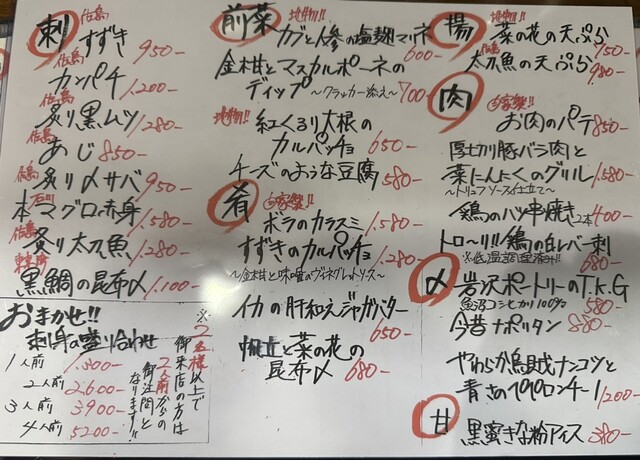 刺
佐島
すずき 950-
佐島
カンパチ 1,200-
佐島
炙り黒ムツ 1,280-
佐島
あじ 850-
佐島
炙り〆サバ 950-
本マグロの赤身 1,580-
佐島
炙り太刀魚 1,280-
黒鯛の昆布〆 1,100-
おまかせ!!
刺身の盛り合わせ
1人前 1,300-
2人前 2,600-
3人前 3900-
4人前 5200-
※2名様以上で
御来店の方は
2人前からの
御注文と
なります!!
前菜
地物!!
カブと人参の塩麹マリネ 600-
金柑とマスカルポーネの
ディップ ~クラッカー添え~ 700-
地物!!
紅くるり大根の
カルパッチョ 650-
チーズのような豆腐 580-
肴
自家製!!
ボラのカラスミ 1,580-
すずきのカルパッチョ 1,280-
~金柑と味噌のヴィネグレットソース~
イカの肝和えジャガバター 650-
帆立と菜の花の
昆布〆 680-
揚
地物!!
菜の花の天ぷら 750-
佐島
太刀魚の天ぷら 980-
肉
自家製!!
お肉のパテ 850-
厚切り豚バラ肉と
葉にんにくのグリル 1,580-
~トリュフソース仕立て~
鶏のハツ串焼き 2本 400-
トロ~リ!!鶏の白レバー刺 680-
※低温調理済み!!
〆
岩沢ポートリーのT.K.G 580-
魚沼コシヒカリ100%
今昔ナポリタン 880-
やわらか烏賊ナンコツと
青さのペペロンチーノ 1200-
甘
黒蜜きな粉アイス 380-